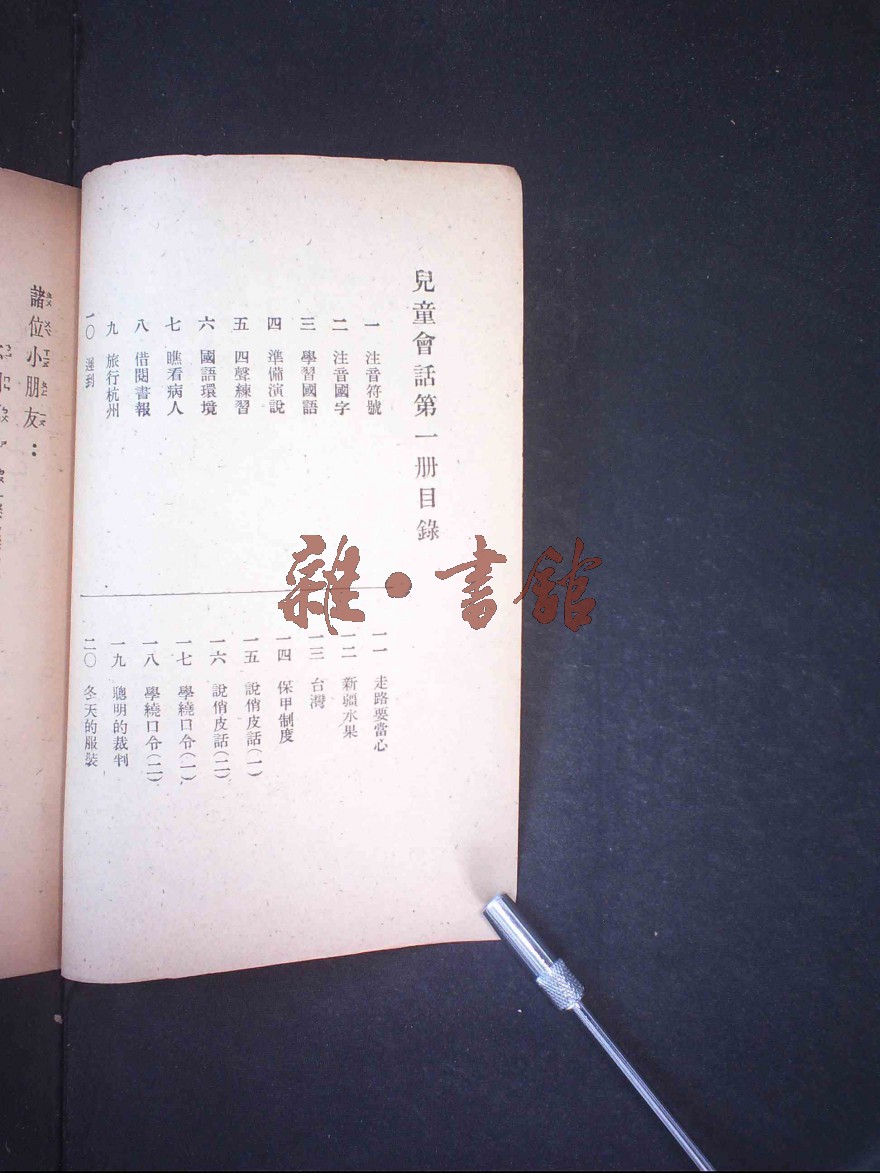 兒童會話第一册目錄
一 注音符號
二 注音國字
三 學習國語
四 準備演說
五 四聲練習
六 國語環境
七 瞧看病人
八 借閱書報
九 旅行杭州
一〇 遲到
一一 走路要當心
一二 新疆水果
一三 台灣
一四 保甲制度
一五 說俏皮話(一)
一六 說俏皮話(二)
一七 學繞口令(一)
一八 學繞口令(二)
一九 聰明的裁判
二〇 冬天的服裝
諸位小朋友：
雜·書館